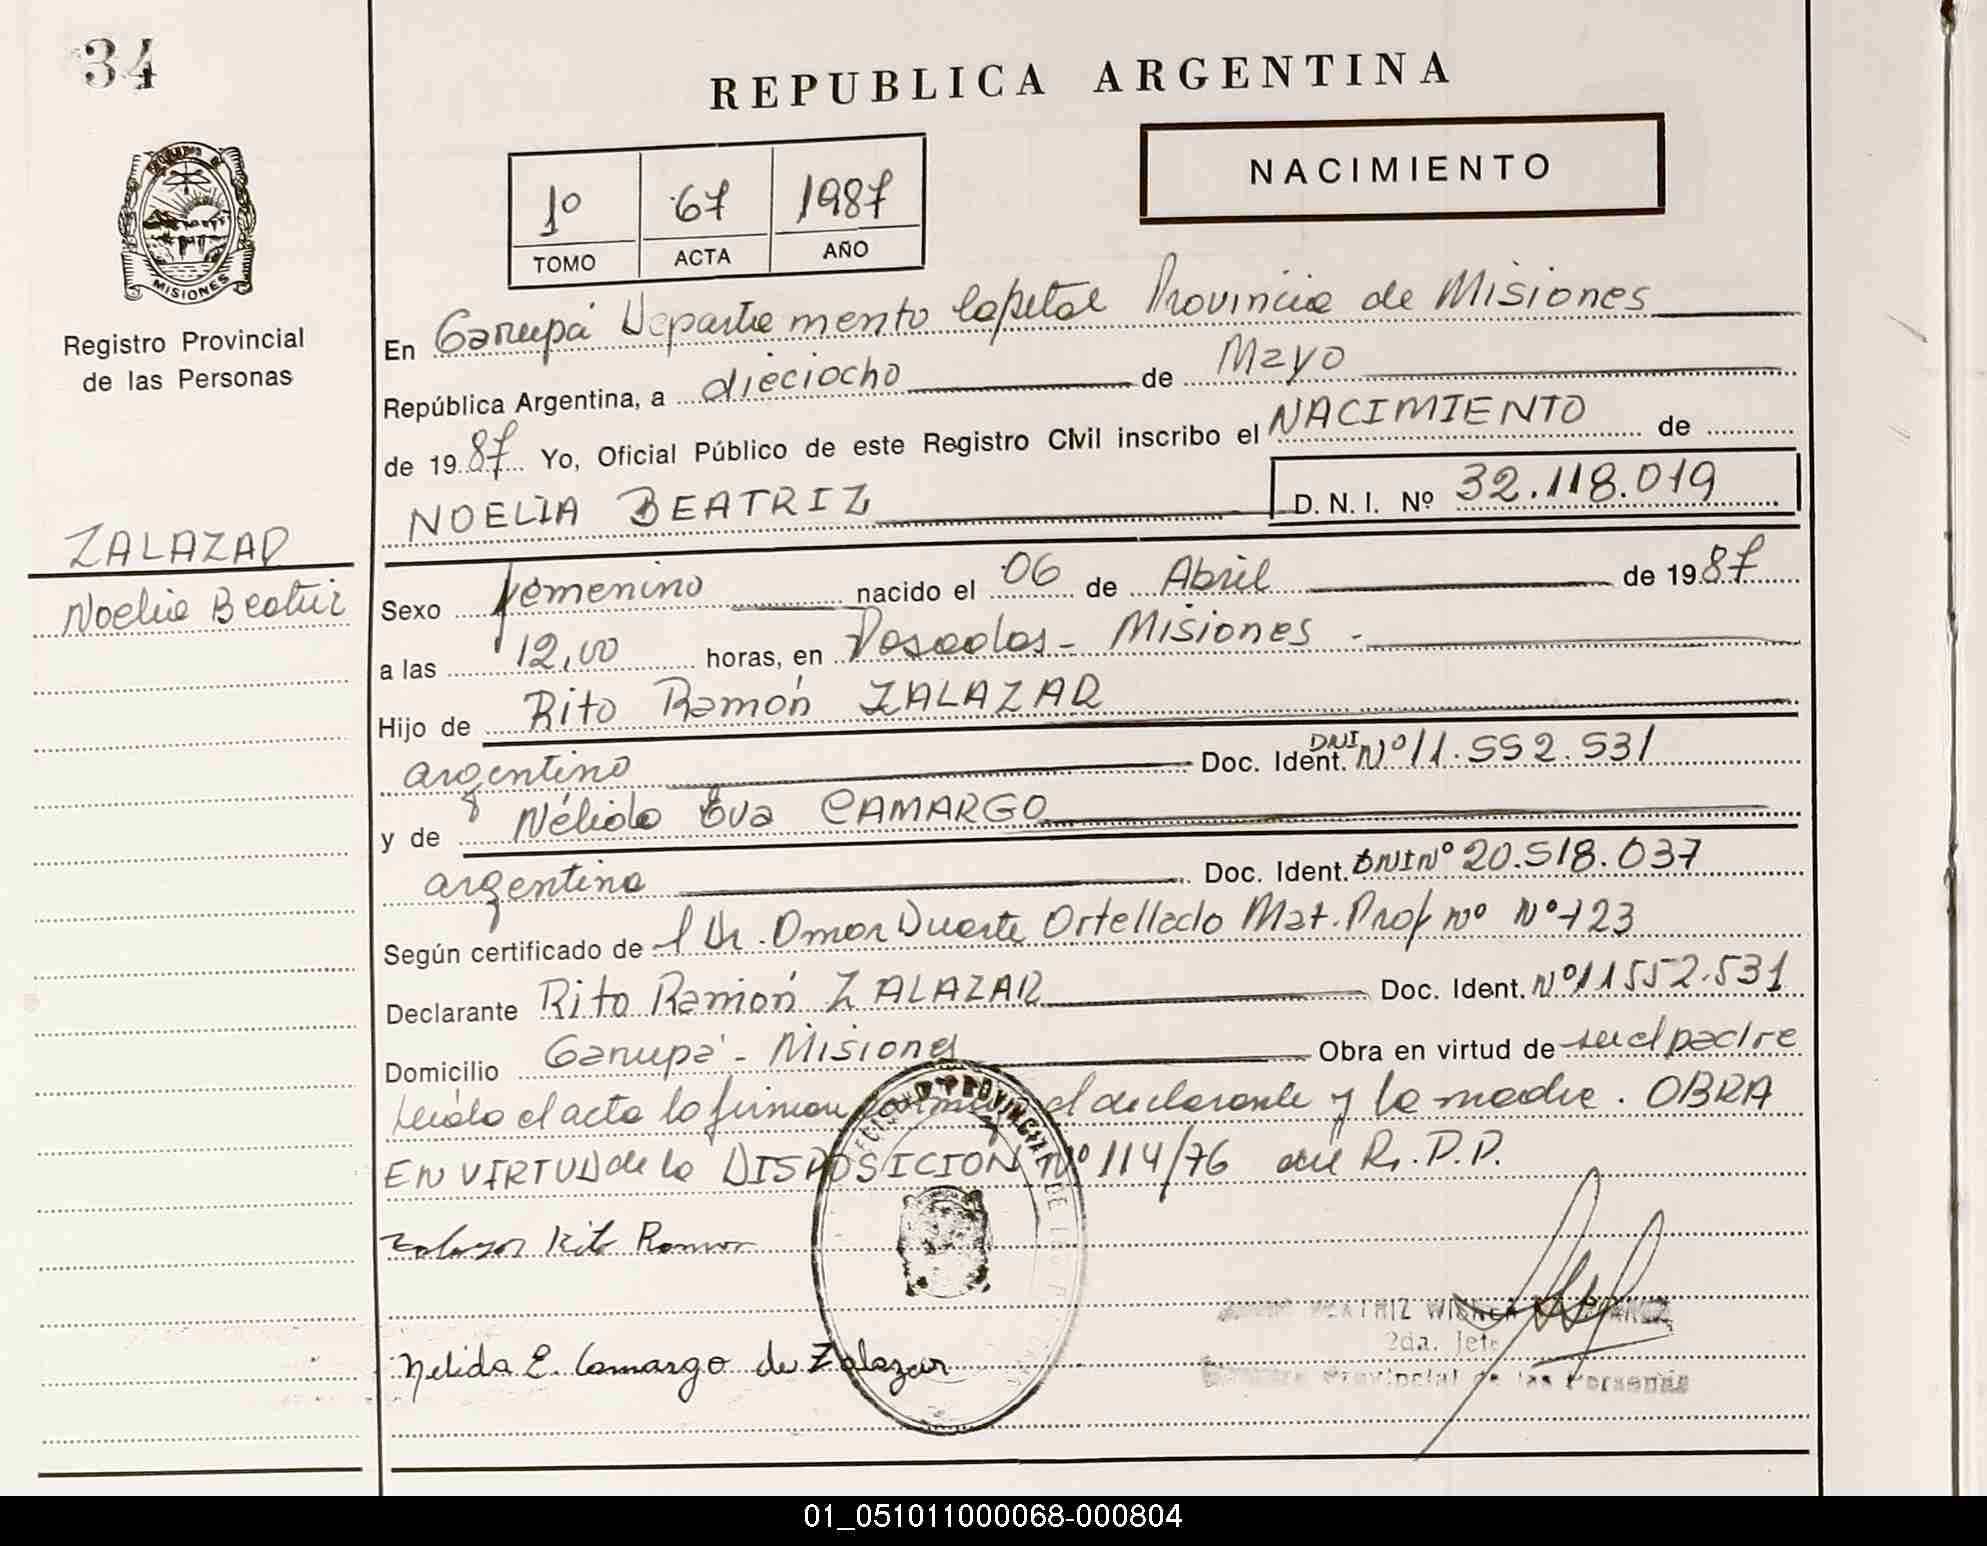 34
REPUBLICA ARGENTINA
NACIMIENTO
1º 67 1987
TOMO ACTA AÑO
MISIONES
Registro Provincial
de las Personas
ZALAZAR
Noelia Beatriz
En Garupá Departamento Capital Provincia de Misiones
República Argentina, a dieciocho de Mayo
de 1987 Yo, Oficial Público de este Registro Civil inscribo el NACIMIENTO de
NOELIA BEATRIZ D. N. I. Nº 32.118.019
Sexo femenino nacido el 06 de Abril de 1987
a las 12,00 horas, en Posadas - Misiones -
Hijo de Rito Ramón ZALAZAR
argentino Doc. Ident. DNI Nº 11.552.531
y de Nélida Eva CAMARGO
argentina Doc. Ident. DNI Nº 20.518.037
Según certificado de l Dr. Omar Duarte Ortellado Mat. Prof Nº Nº 123
Declarante Rito Ramón ZALAZAR Doc. Ident. Nº 11552.531
Domicilio Garupá - Misiones Obra en virtud de ser el padre
Leída el acta la firman el declarante y la madre. OBRA
EN VIRTUD de la DISPOSICION Nº 114/76 del R.P.P.
Zalazar Rito Ramon
BEATRIZ
2da. Jefe
Nelida E. Camargo de Zalazar
Provincial de las Personas
01_051011000068-000804